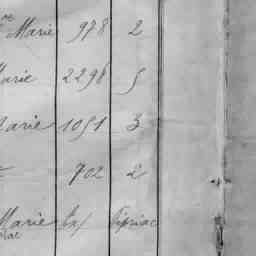 me
Marie 978 2
Marie 2296 5
Marie 1051 3
702 2
Marie